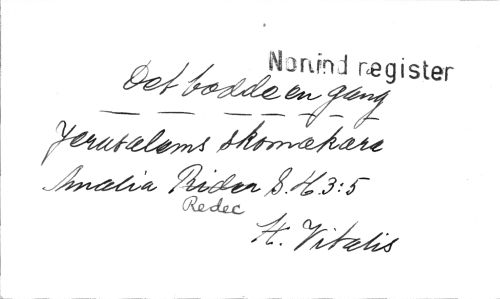 Norind register
Det bodde en gang
Jerusalems skomakare
Amalia Riden S. H. 3:5
Redec
H. Vitalis